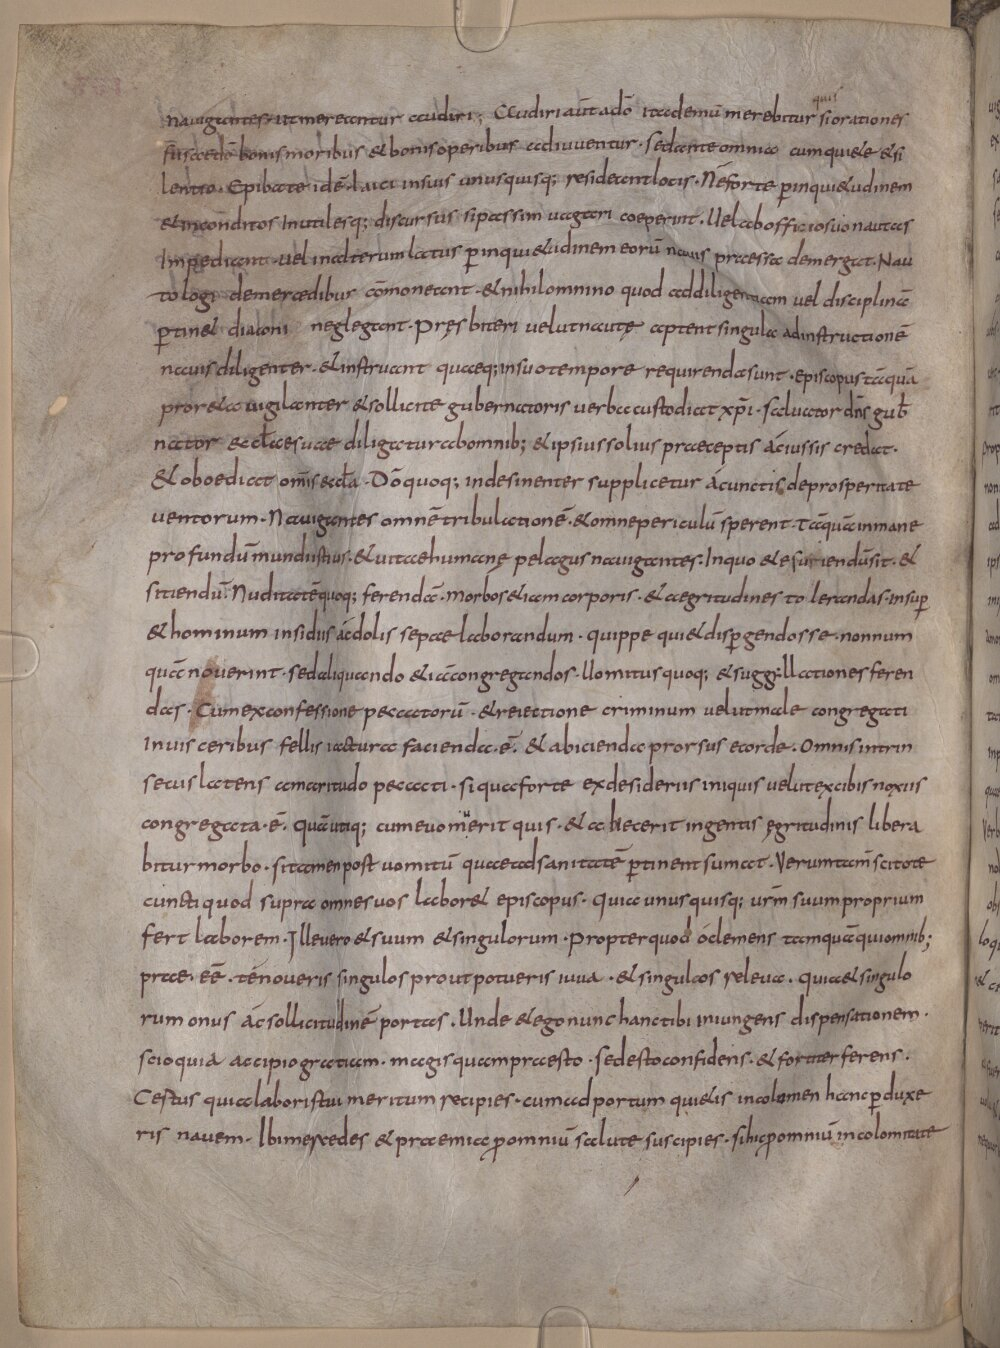 quis
nauigantes ut mereantur audiri; Audiri aūt adō ita demū merebitur si orationes
fusae adō bonis moribus & bonis operibus adiuuentur. sed ante omnia cum quiete & si
lentio. Epibate idē. laici in suis unusquisq; resideant locis. Nē forte p inqui&udinem
& inconditos Inutilesq; discursus si passim uagari coeperint. Uel ab officio suo nautas
Impediant. uel in alterum latus p inqui&udinem eorū nauis praessa demergat. Nau
tologi de mercedibus cōmoneant. & nihilominino quod ad diligentiam uel disciplinā
ptin& diaconi neglegant. Pręsbiteri uelut nautę aptent singula ad instructionē
nauis diligenter. & instruant quaeq; in suo tempore requirenda sunt. episcopus tāquā
proreta uigilanter & sollicite gubernatoris uerba custodiat xp̄i. saluator dn̄s gub
nator & ecl̄ae suae diligatur ab omnib; & ipsius solius praeceptis ac iussis credat.
& oboediat om̄is eccl̄a. Dō quoq; indesinenter supplicetur á cunctis de prosperitate
uentorum. Nauigantes omnē tribulationē. & omne periculū sperent. tāquā in mane
profundū mundi istius. & uitae humanę pelagus nauigantes. In quo & esuriendū sit. &
sitiendū. Nuditatē quoq; ferendā. morbos & iam corporis. & aegritudines tolerandas. insup
& hominum insidiis ac dolis sepae laborandum. quippe qui & dispgendos se. nonnum
quā nouerint. sed aliquando & iā congregandos. Uomitus quoq; & suggillationes feren
das. Cum ex confessione peccatorū. & reiectione criminum uelut male congregati
In uisceribus fellis iactura facienda. ē. & abicienda prorsus e corde. Omnis intrin
secus latens amaritudo peccati. si qua forte ex desideriis iniquis uelut ex cibis noxiis
congregata. ē. Quā utiq; cum euomuerit quis. & abiecerit ingentis ęgritudinis libera
bitur morbo. si tamen post uomitū quae ad sanitatē ptinent sumat. Verum tam scitote
cuncti quod supra omnes uos labor& episcopus. quia unusquisq; ur̄m suum proprium
fert laborem. Ille uero & suum & singulorum. Propter quod ó clemens tamquā qui omnib;
prae. eē. te noueris singulos prout potueris iuua. & singulos releua. quia & singulo
rum onus ac sollicitudinē portas. Unde & ego nunc hanc tibi iniungens dispensationem.
scio quia accipio gratiam. magis quam praesto. sed esto confidens. & fortiter ferens.
Certus quia labori stui meritum recipies. cum ad portum qui&is incolomen hanc pduxe
ris nauem. Ibi mercedes & praemia p omniū salute suscipies. si hic p omniū incolomitate